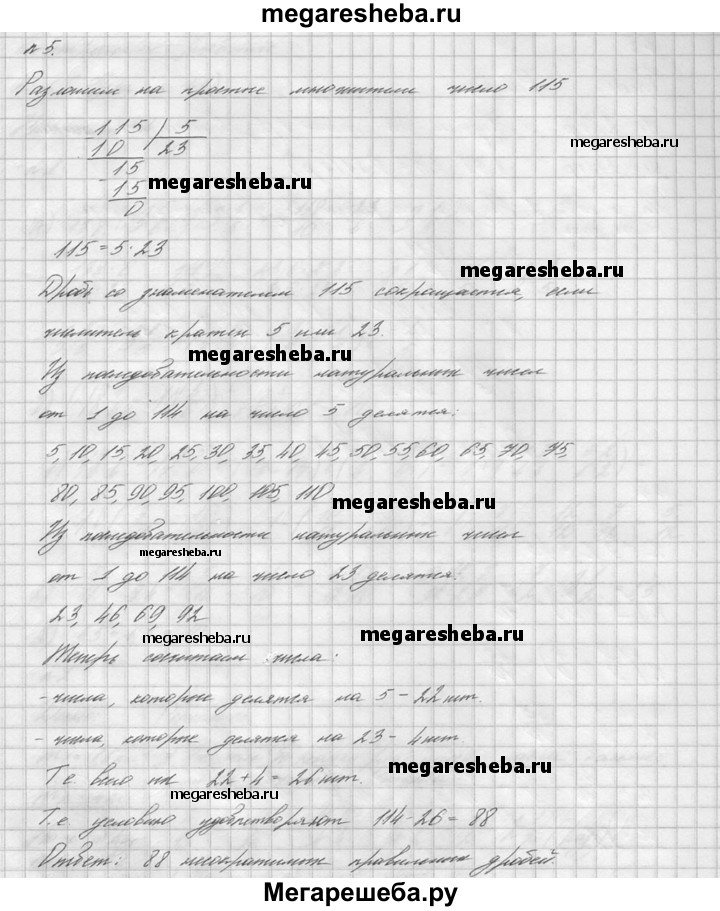 megaresheba.ru
n 5.
Разложим на простые множители число 115
115 | 5
10 23
megaresheba.ru
15
15
megaresheba.ru
0
115 = 5 · 23
megaresheba.ru
Дробь со знаменателем 115 сокращается, если
числитель кратен 5 или 23.
megaresheba.ru
Из последовательности натуральных чисел
от 1 до 114 на число 5 делятся:
5, 10, 15, 20, 25, 30, 35, 40, 45, 50, 55, 60, 65, 70, 75
80, 85, 90, 95, 100, 105, 110
megaresheba.ru
Из последовательности натуральных чисел
megaresheba.ru
от 1 до 114 на число 23 делятся:
23, 46, 69, 92
megaresheba.ru
megaresheba.ru
Теперь сосчитаем числа:
- числа, которые делятся на 5 - 22 шт.
- числа, которые делятся на 23 - 4 шт.
Т.е. всего их 22 + 4 = 26 шт.
megaresheba.ru
megaresheba.ru
Т.е. условию удовлетворяют 114 - 26 = 88
Ответ: 88 несократимых правильных дробей.
Мегарешеба.ру